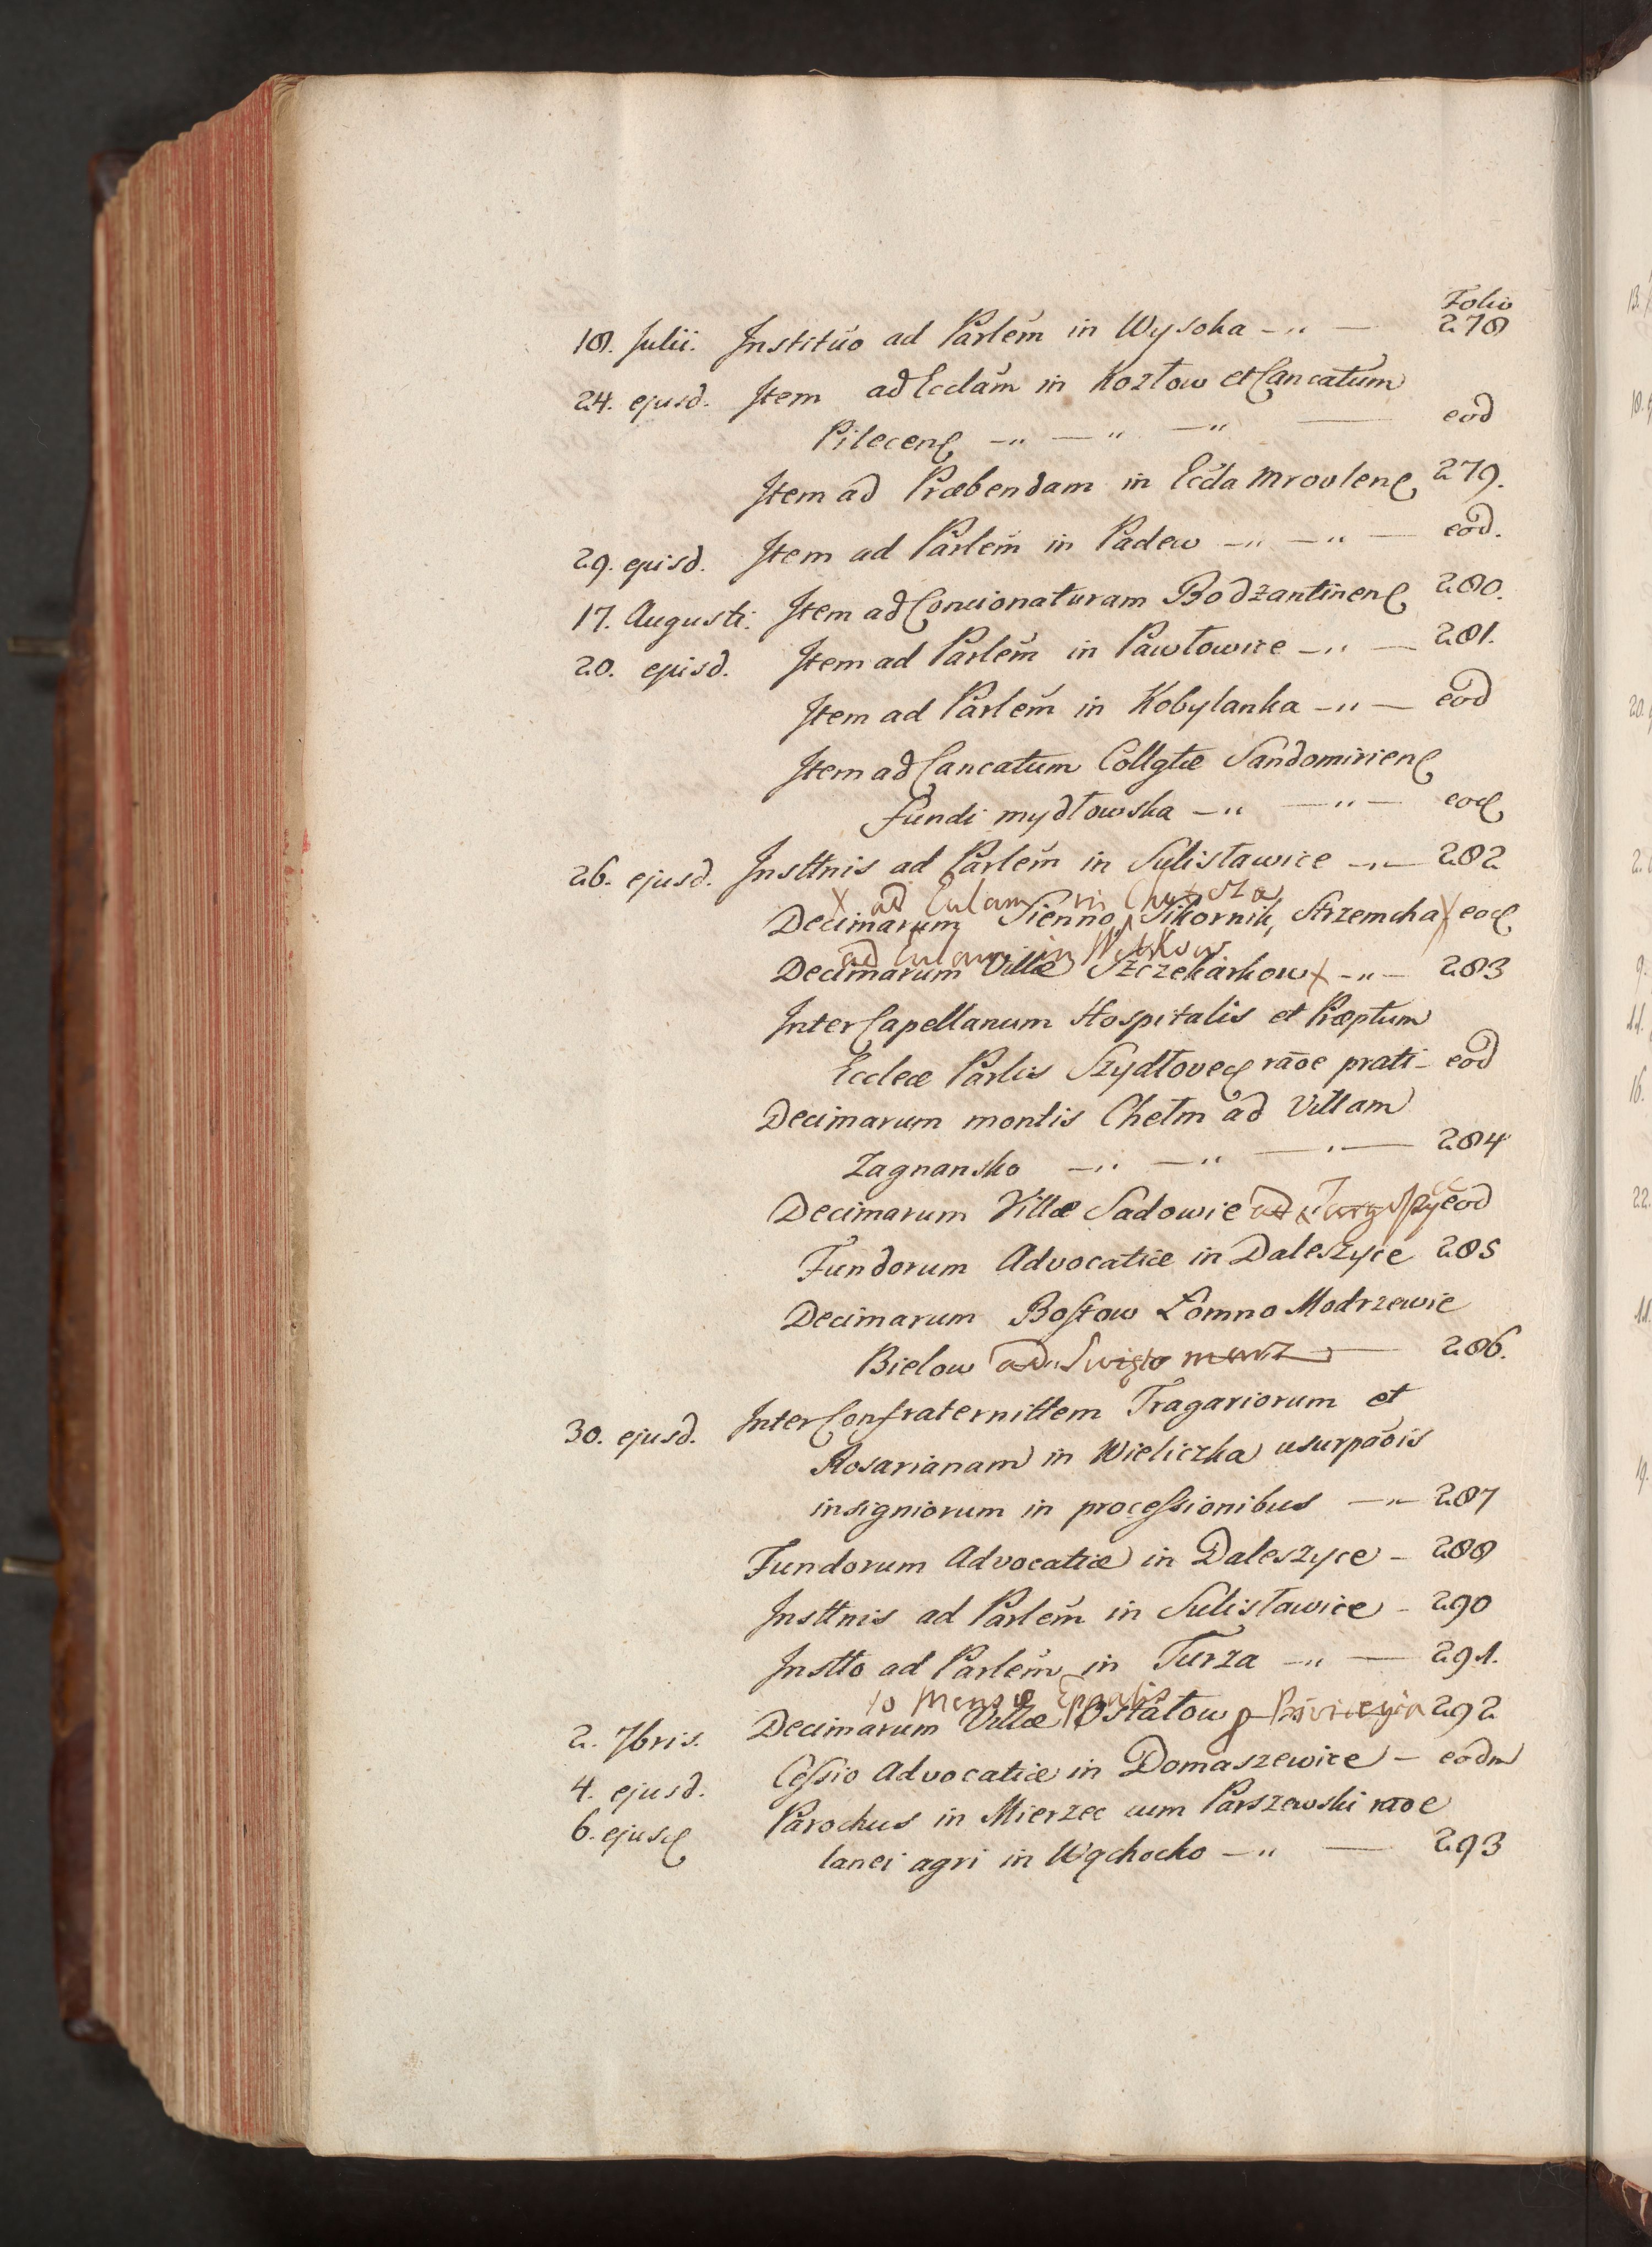 Folio
18. Julii. Institúo ad Parlem̃ in Wysoka -"- 278
24. ejusd. Item ad Ecclam̃ in Kozłow et Cancatum
Pilecens -"-"-"- eod
Item ad Præbendam in Eccla Mrovlens 279.
29. ejusd. Item ad Parlem̃ in Padew -"-"- eod.
17. Augusti. Item ad Concionaturam Bodzantinens 280.
20. ejusd. Item ad Parlem̃ in Pawłowice -"- 281.
Item ad Parlem̃ in Kobylanka -"- eod
Item ad Cancatum Collgtæ Sandomiriens
Fundi mydłowska -"-"- eod
26. ejusd. Insttnis ad Parlem̃ in Sulisławice -"- 282
x ad Eccلam in
Decimarum Sienno, Sikornik, Strzemcha x eod
ad in Witkow
Decimarum Villæ Szczekarkow x -"- 283
Inter Capellanum Hospitalis et Præptum
Eccleæ Parlis Szydłovec rãoe prati - eod
Decimarum montis Chełm ad Villam
Zagnansko -"-"-"- 284
Decimarum Villæ Sadowie ad eod
Fundorum Advocatiæ in Daleszyce 285
Decimarum Bostow Łomno Modrzewie
Bielow ad Święto marz - 286.
30. ejusd. Inter Confraternittem Tragariorum et
Rosarianam in Wieliczka usurpãois
insigniorum in processionibus -"- 287
Fundorum Advocatiæ in Daleszyce - 288
Insttnis ad Parlem̃ in Sulisławice - 290
Instto ad Parlem̃ in Turza -"- 291.
to Mensæ Epaalis
2. 7bris. Decimarum Villæ Ostałow p Privilegia 292
4. ejusd. Cessio Advocatiæ in Domaszewice - eodm
6. ejusd Parochus in Mierzec cum Parszewski rãoe
lanei agri in Wąchocko -"- 293